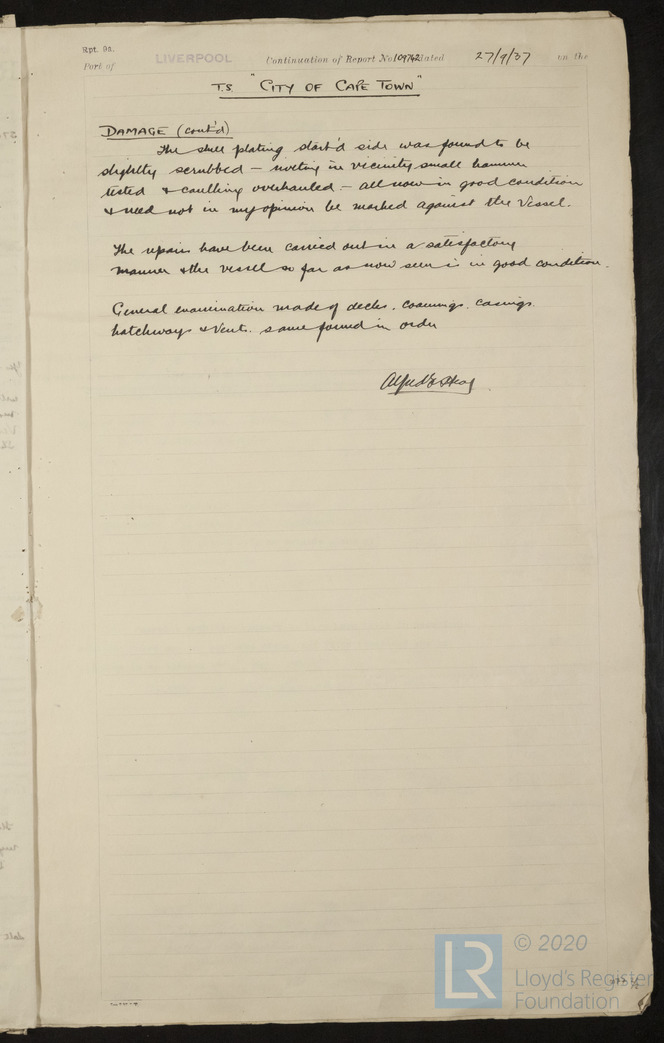 Rpt. 9a.
Port of LIVERPOOL Continuation of Report No. 109742 dated 27/9/37 on the
T.S. "CITY OF CAPE TOWN"
DAMAGE (cont'd)
The shell plating starb'd side was found to be
slightly scrubbed – riveting in vicinity small hammer
tested & caulking overhauled – all now in good condition
& need not in my opinion be marked against the vessel.
The repairs have been carried out in a satisfactory
manner & the vessel so far as now seen is in good condition.
General examination made of decks, coamings, casings
hatchways & vents. same found in order
© 2020
LR
Lloyd's Register
Foundation